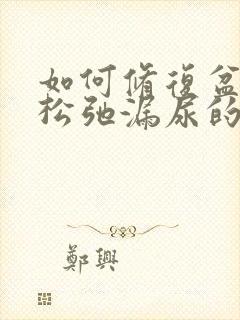 如何修復盆
松弛漏尿的
鄭興